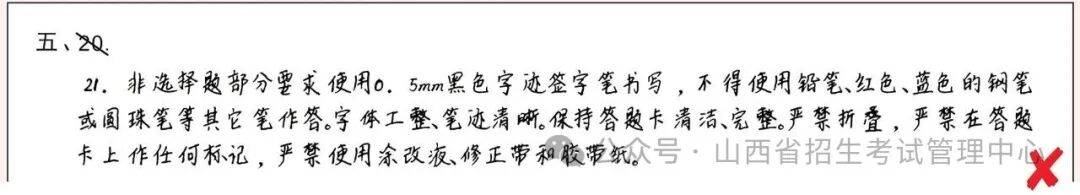 五、20.
21. 非选择题部分要求使用0.5mm黑色字迹签字笔书写，不得使用铅笔、红色、蓝色的钢笔
或圆珠笔等其它笔作答。字体工整、笔迹清晰。保持答题卡清洁、完整。严禁折叠，严禁在答题
卡上作任何标记，严禁使用涂改液、修正带和胶带纸。
公众号·山西省招生考试管理中心